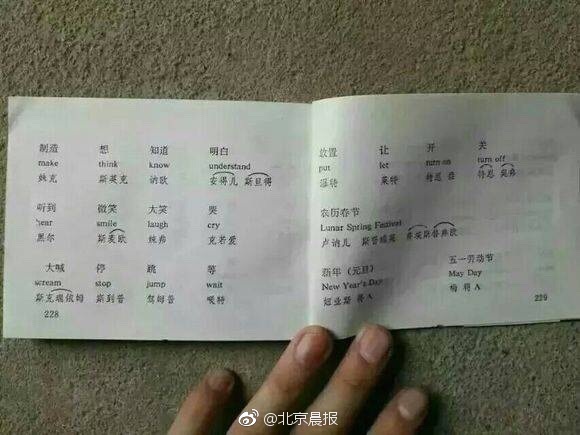 制造 想 知道 明白
make think know understand
妹克 斯英克 讷欧 安得儿 斯旦得
听到 微笑 大笑 哭
hear smile laugh cry
黑尔 斯麦欧 拉弗 克若爱
大喊 停 跳 等
scream stop jump wait
斯克瑞依姆 斯到普 驾姆普 喂特
228
放置 让 开 关
put let turn on turn off
莱特 特恩 特恩 奥弗
农历春节
Lunar Spring Festival
卢讷儿 斯普瑞英 弗埃斯普弗欧
新年（元旦） 五一劳动节
New Year's Day May Day
妞业斯 得A 梅 得A
229
@北京晨报